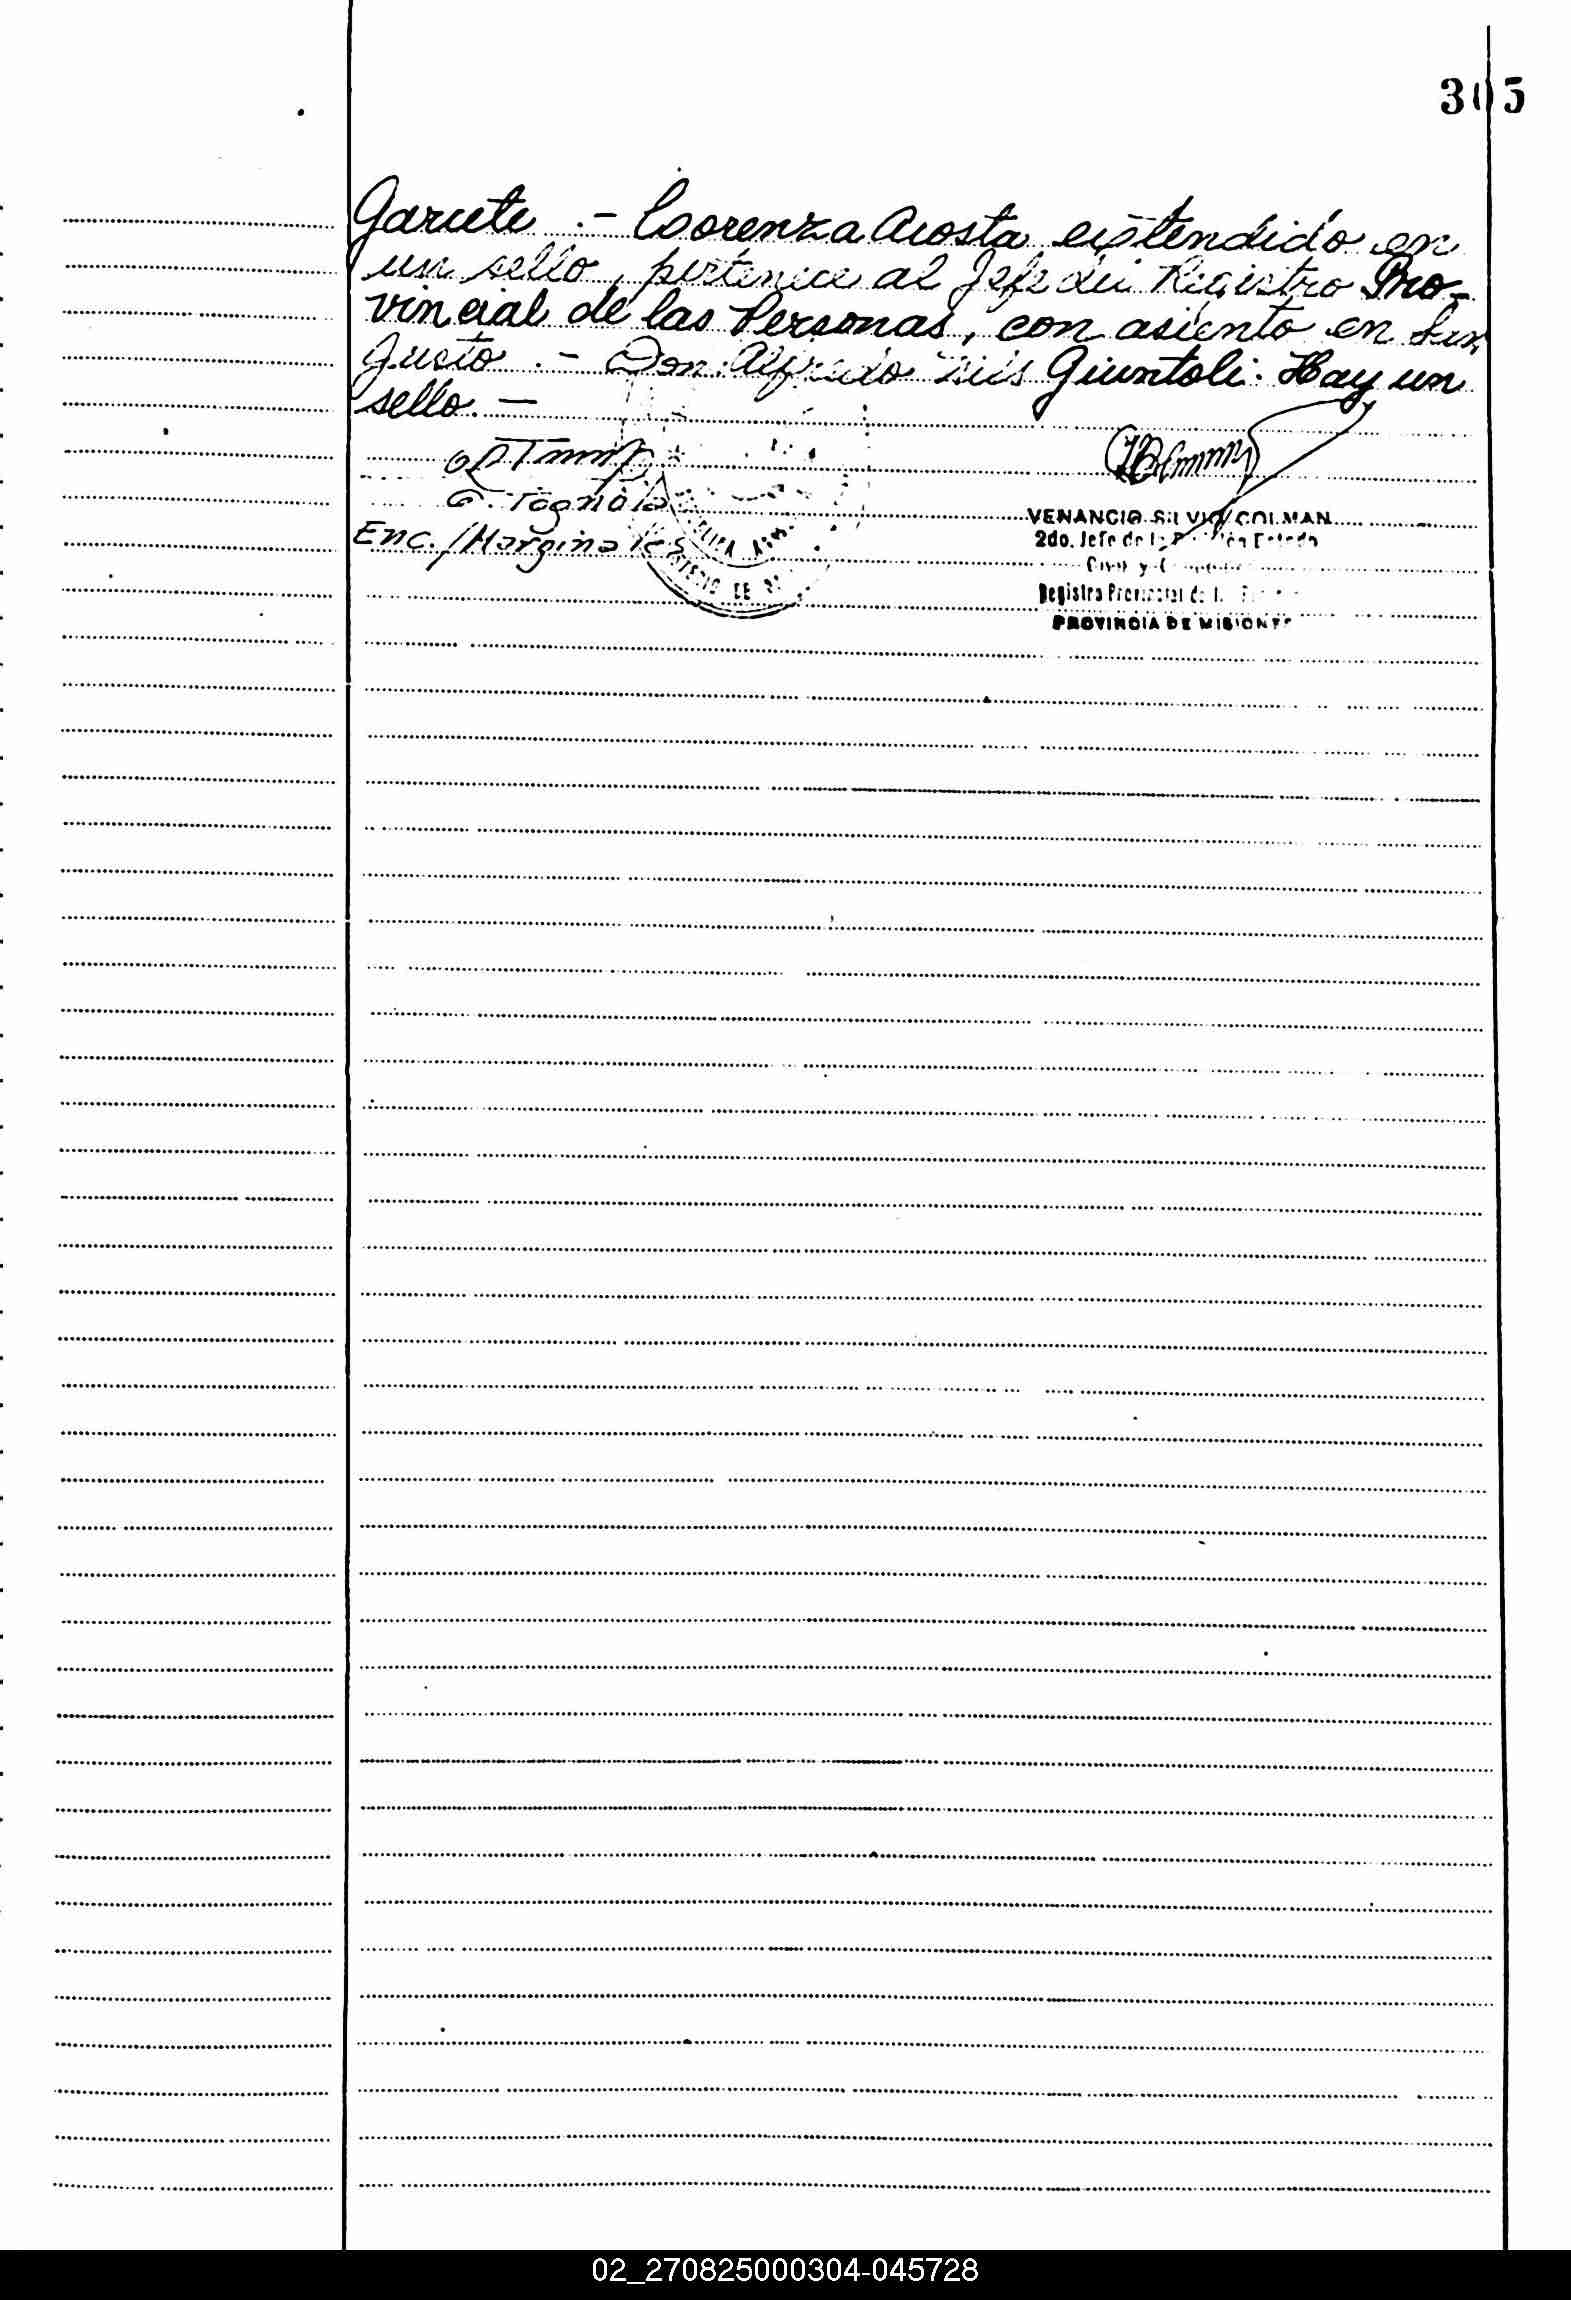 305
Garcete .- Lorenza Acosta extendido en
un sello, pertenece al Jefe del Registro Pro-
vincial de las Personas, con asiento en San
Justo .- Don Alfredo Luis Giuntoli. Hay un
sello. -
G. Tognola
Enc./Marginales
VENANCIO SILVIO COLMAN
2do. Jefe de la
Civil y
Registro Provincial de
PROVINCIA DE MISIONES
02_270825000304-045728